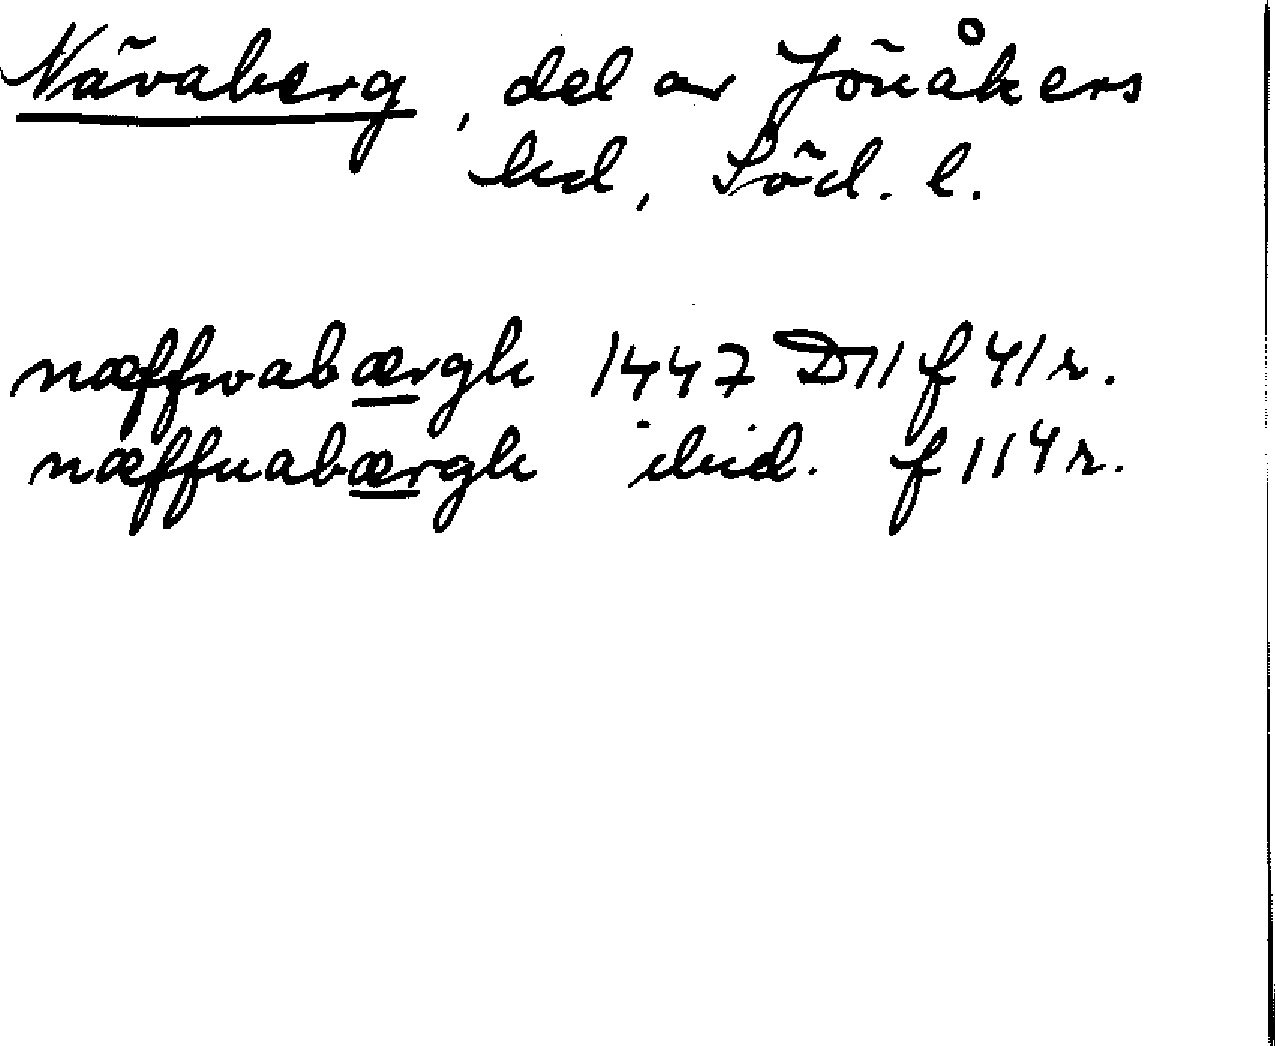 Nävaberg, del av Jönåkers
hd, Söd. l.
næffwabærgh 1447 D11 f 41 r.
næffuabærgh ibid. f 114 r.